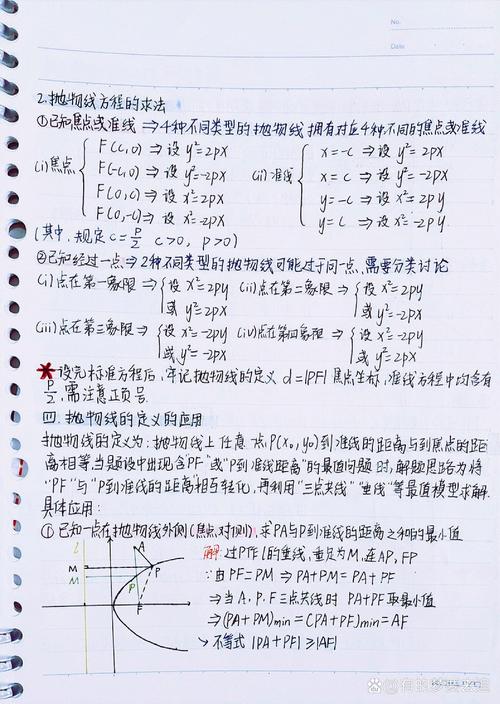 No.
Date
2.抛物线方程的求法
①已知焦点或准线⇒4种不同类型的抛物线拥有对应4种不同的焦点或准线
(i)焦点 { F(c,0)⇒设 y²=2px (ii)准线 { x=-c⇒设 y²=2px
F(-c,0)⇒设 y²=-2px x=c⇒设 y²=-2px
F(0,c)⇒设 x²=2px y=-c⇒设 x²=2py
F(0,-c)⇒设 x²=-2px y=c⇒设 x²=-2py
(其中,规定c=p/2 c>0, p>0)
②已知经过一点⇒2种不同类型的抛物线可能过于同一点,需要分类讨论
(i)点在第一象限⇒{设 x²=2py (ii)点在第二象限⇒{设 x²=2py
或 y²=2px 或 y²=-2px
(iii)点在第三象限⇒{设 x²=-2py (iv)点在第四象限⇒{设 x²=-2py
或 y²=-2px 或 y²=2px
设完标准方程后,牢记抛物线的定义 d=|PF| 焦点坐标,准线方程中均含有
p/2,需注意正负号
四.抛物线的定义的应用
抛物线的定义为:抛物线上任意一点P(x₀,y₀)到准线的距离与到焦点的距
离相等,当题设中出现含"PF"或"P到准线距离"的最值问题时,解题思路为将
"PF"与"P到准线的距离"相互转化,再利用"三点共线""垂线"等最值模型求解.
具体应用:
①已知一点在抛物线外侧(焦点对侧),求PA与P到准线的距离之和的最小值
l A 解:过P作l的垂线,垂足为M,连AP,FP
M P ∵由PF=PM⇒PA+PM=PA+PF
M P ⇒当A、P、F三点共线时 PA+PF取最小值
F ⇒(PA+PM)min=(PA+PF)min=AF
↘不等式|PA+PF|≥|AF|